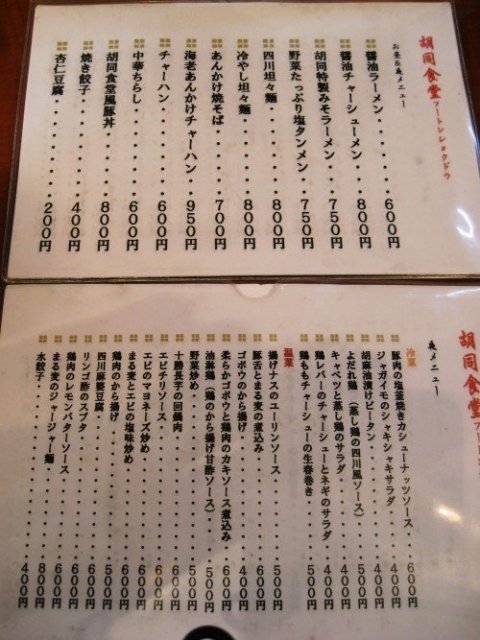 胡同食堂 フートンショクドウ
お昼&夜メニュー
醤油ラーメン・・・・・・600円
醤油チャーシューメン・・・800円
胡同特製みそラーメン・・・750円
野菜たっぷり塩タンメン・・750円
四川坦々麺・・・・・・・800円
冷やし坦々麺・・・・・・800円
あんかけ焼そば・・・・・700円
海老あんかけチャーハン・・950円
チャーハン・・・・・・・600円
中華ちらし・・・・・・・600円
胡同食堂風豚丼・・・・・800円
焼き餃子・・・・・・・・400円
杏仁豆腐・・・・・・・・200円
胡同食堂 フート
夜メニュー
冷菜
豚肉の塩釜焼きカシューナッツソース・・600円
ジャガイモのシャキシャキサラダ・・・400円
胡麻油漬けピータン・・・・・・400円
よだれ鶏(蒸し鶏の四川風ソース)・・500円
キャベツと蒸し鶏のサラダ・・・・400円
鶏レバーのチャーシューとネギのサラダ・・400円
鶏ももチャーシューの生春巻き・・・500円
温菜
揚げナスのユーリンソース・・・・500円
豚舌とまる麦の煮込み・・・・・600円
ゴボウのから揚げ・・・・・・400円
柔らかゴボウと鶏肉のカキソース煮込み・・600円
油淋鶏(鶏のから揚げ甘酢ソース)・・500円
野菜炒め・・・・・・・・・500円
十勝長芋の回鍋肉・・・・・・600円
エビチリソース・・・・・・・600円
エビのマヨネーズ炒め・・・・・600円
まる麦とエビの塩味炒め・・・・600円
鶏肉のから揚げ・・・・・・・500円
四川麻婆豆腐・・・・・・・・600円
リンゴ酢のスブタ・・・・・・600円
鶏肉のレモンバターソース・・・・600円
まる麦のジャージャー麺・・・・800円
水餃子・・・・・・・・・・400円